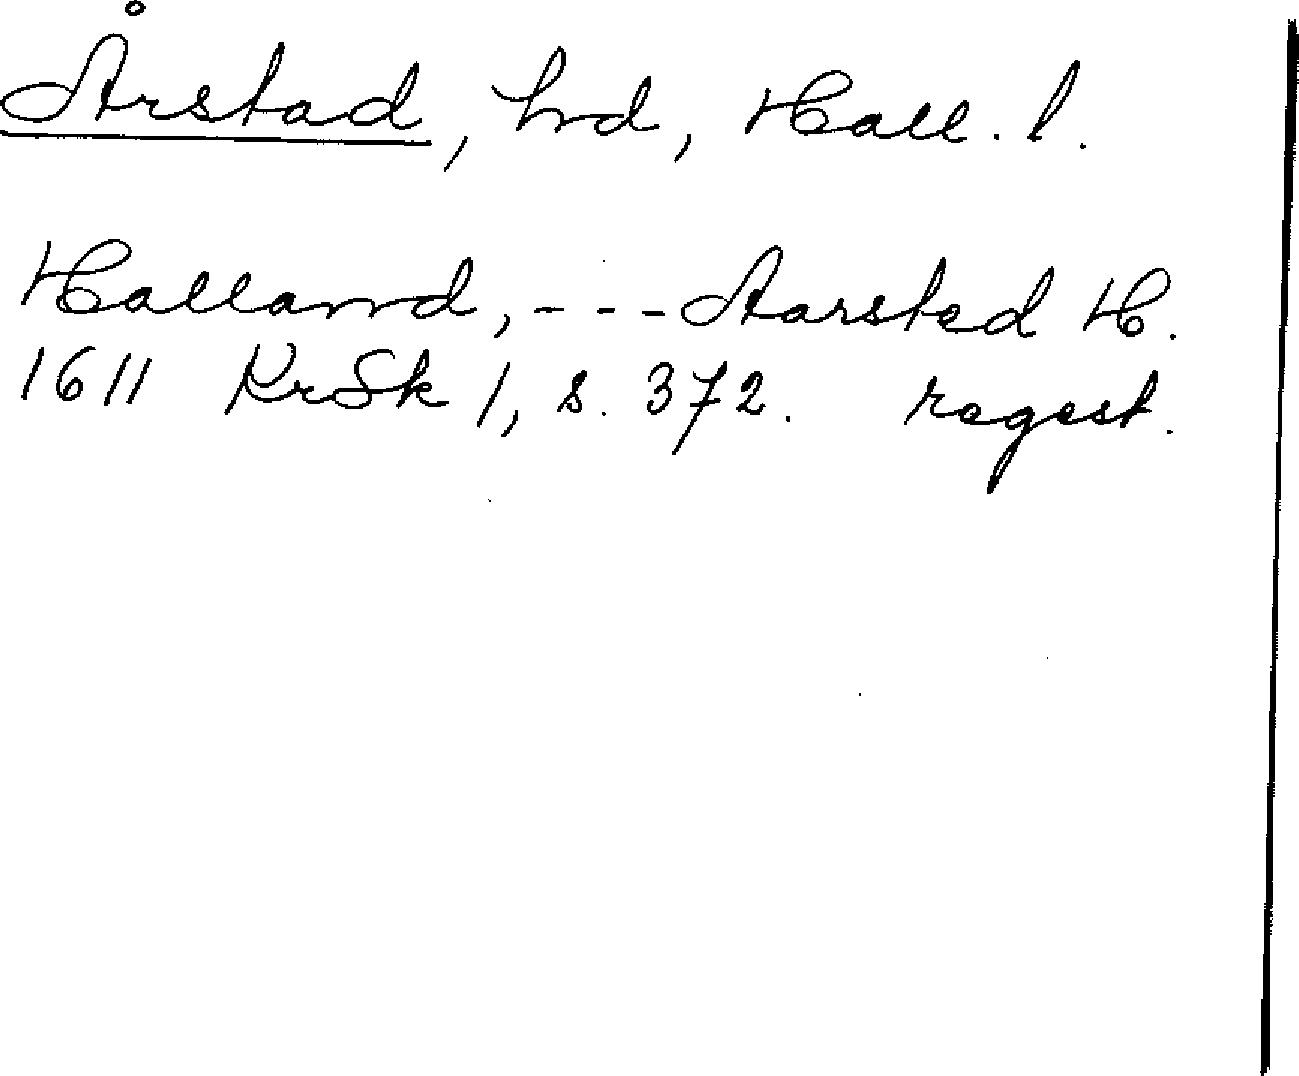 Årstad, hrd, Hall. l.
Halland, - - - Aarsted H.
1611 KrSk 1, s. 372. regest.